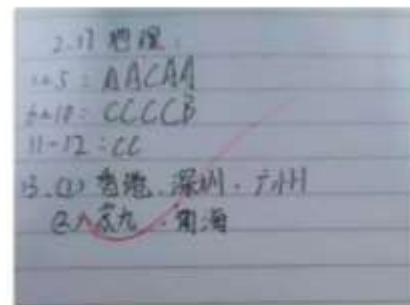 2.17 地理:
1~5: AACAA
6~10: CCCCB
11-12: CC
13.(1) 香港、深圳、广州
② 京九、南海